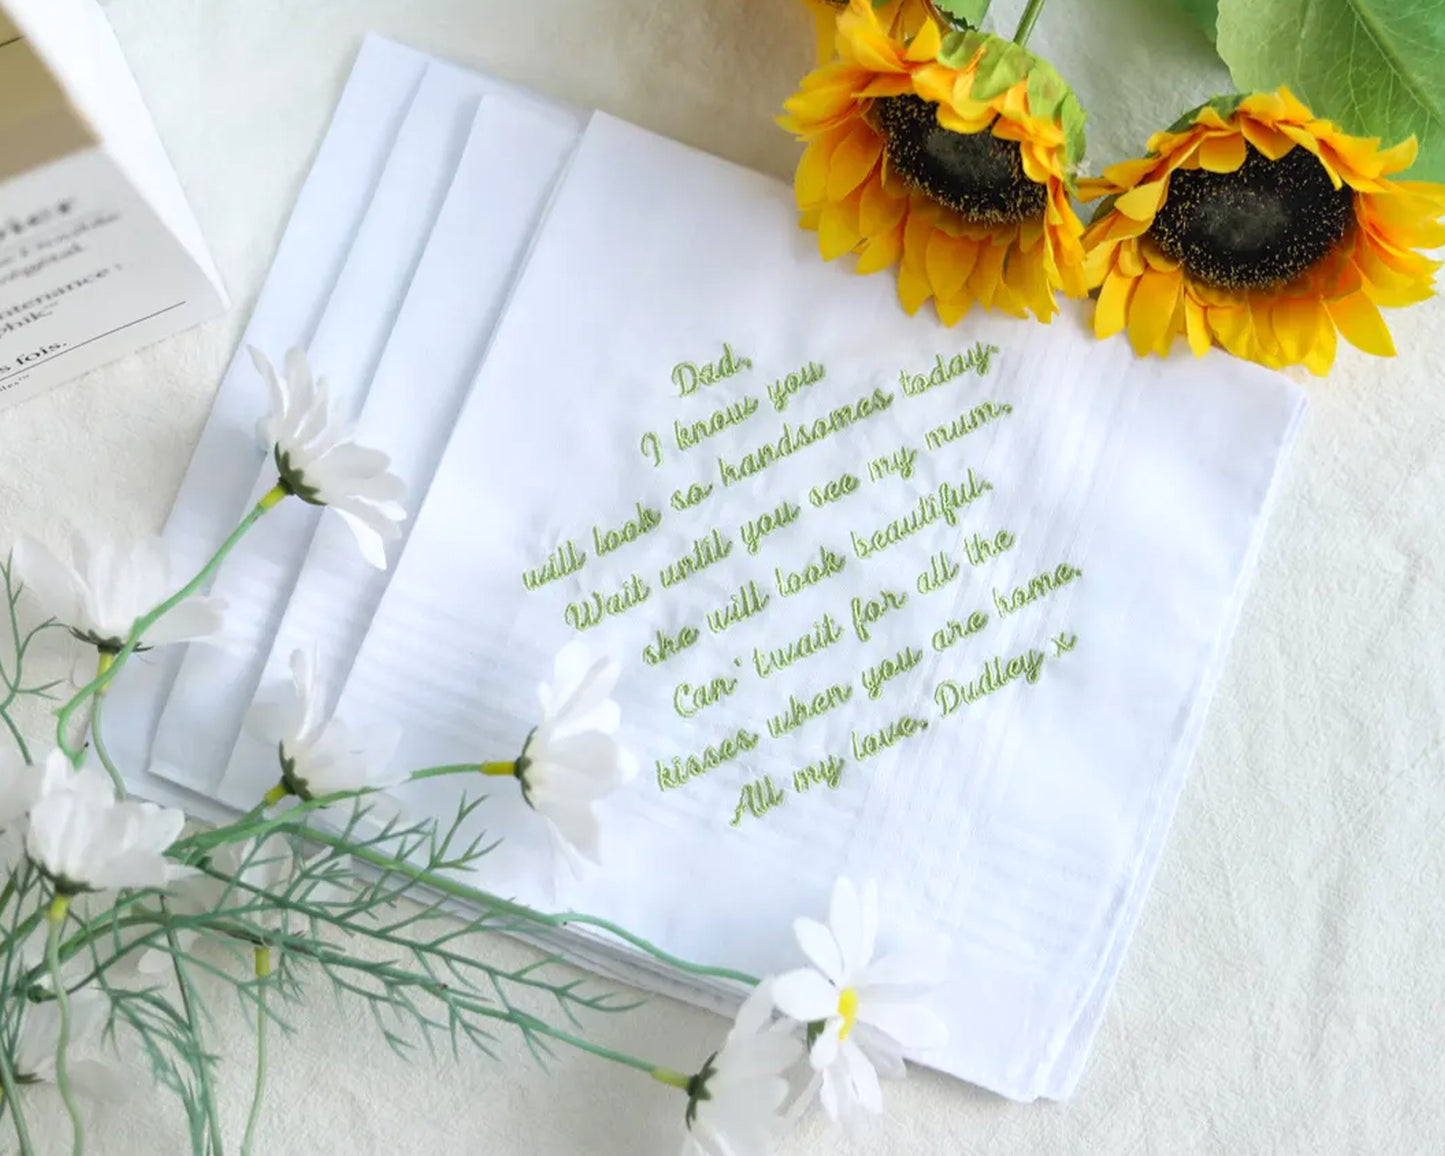 Dad,
I know you
will look so handsomes today.
Wait until you see my mum,
she will look beautiful.
Can' twait for all the
kisses when you are home.
All my love. Dudley x
s fois.